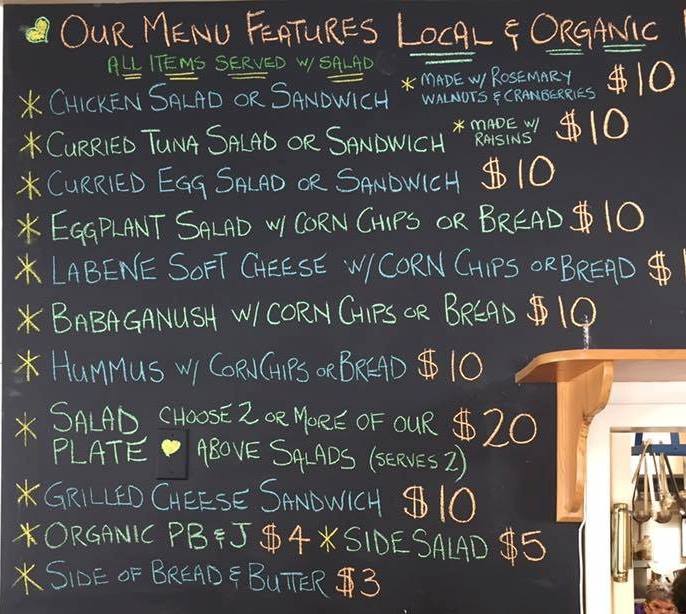 OUR MENU FEATURES LOCAL & ORGANIC
ALL ITEMS SERVED W/ SALAD
* CHICKEN SALAD OR SANDWICH * MADE W/ ROSEMARY WALNUTS & CRANBERRIES $10
* CURRIED TUNA SALAD OR SANDWICH * MADE W/ RAISINS $10
* CURRIED EGG SALAD OR SANDWICH $10
* EGGPLANT SALAD W/ CORN CHIPS OR BREAD $10
* LABENE SOFT CHEESE W/ CORN CHIPS OR BREAD $
* BABAGANUSH W/ CORN CHIPS OR BREAD $10
* HUMMUS W/ CORN CHIPS OR BREAD $10
* SALAD CHOOSE 2 OR MORE OF OUR $20
PLATE ABOVE SALADS (SERVES 2)
* GRILLED CHEESE SANDWICH $10
* ORGANIC PB & J $4 * SIDE SALAD $5
* SIDE OF BREAD & BUTTER $3